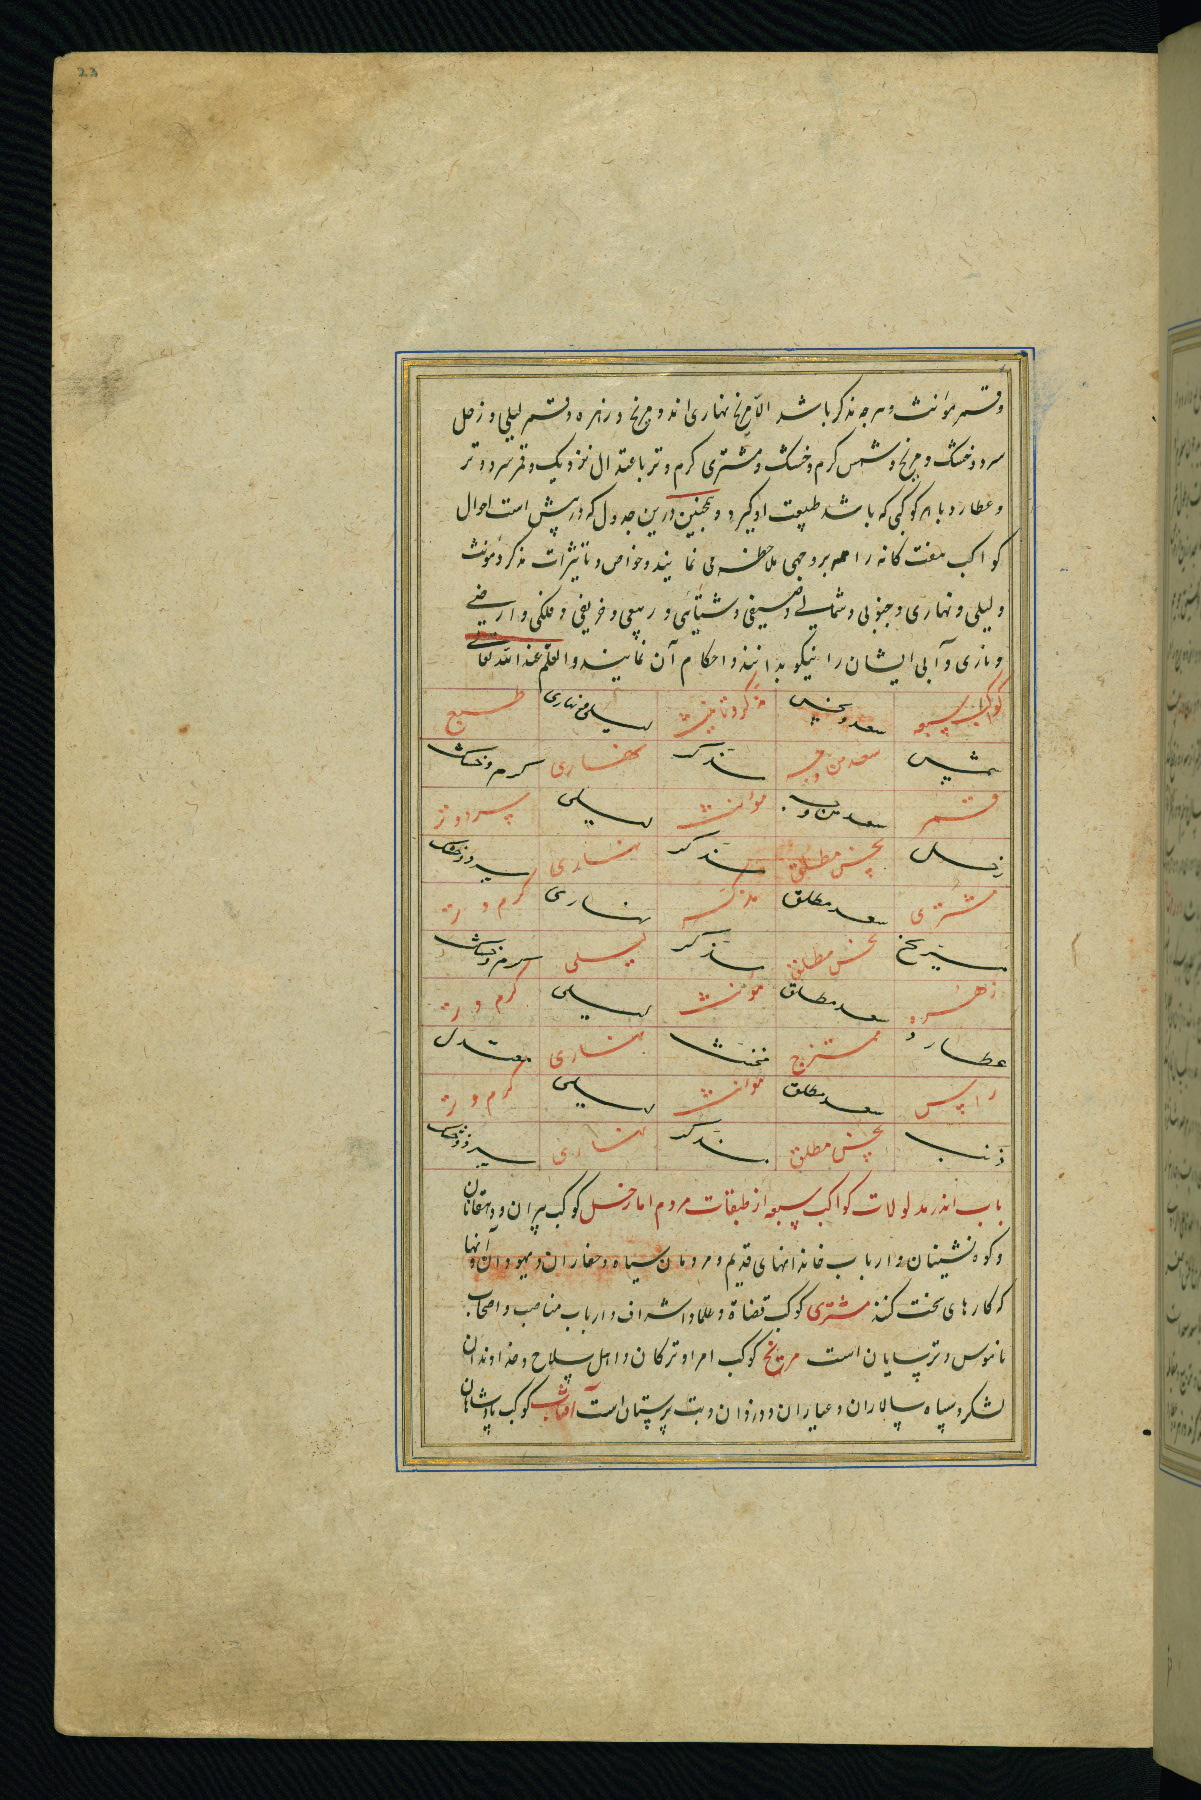 23
وقمر موانث وهر چه مذکر باشد الا مریخ نهاری اند و مریخ و زهره وقمر لیلی و زحل
سرد و خشک و مریخ و شمس کرم و خشک و مشتری کرم و تر باعتدال نزدیک و قمر سرد و تر
و عطارد با هر کوکبی که باشد طبیعت او کیرد و همچنین درین جدول که در پیش است احوال
کواکب هفت کانه را همه بروجهی ملاحظه می نمایند و خواص و تاثیرات مذکر و مونث
و لیلی و نهاری و جنوبی و شمالی و صیفی و شتایی و ربیعی و خریفی و فلکی و ارضی
و ناری و آبی ایشان را نیکو بدانند و احکام آن نمایند والعلم عند الله تعالی
کواکب سبعه سعد و نحس مذکر و تانیث لیلی و نهاری طبع
شمس سعد من وجه مذکر نهاری کرم و خشک
قمر سعد من وجه موانث لیلی سرد و تر
زحل نحس مطلق مذکر نهاری سرد و خشک
مشتری سعد مطلق مذکر نهاری کرم و تر
مریخ نحس مطلق مذکر لیلی کرم و خشک
زهره سعد مطلق موانث لیلی کرم و تر
عطارد ممتزج مخنث نهاری معتدل
راس سعد مطلق موانث لیلی کرم و تر
ذنب نحس مطلق مذکر نهاری سرد و خشک
باب اندر مدلولات کواکب سبعه از طبقات مردم اما زحل کوکب پیران و دهقانان
و کوه نشینان و ارباب خاندانهای قدیم و مردمان سیاه و حفاران و یهودان و آنها
که کارهای سخت کنند مشتری کوکب قضاة و علما و اشراف و ارباب مناصب و اصحاب
ناموس و ترسایان است مریخ کوکب امرا و ترکان و اهل سلاح و خداوندان
لشکر و سپاه سالاران و عیاران و دزدان و بت پرستان است آفتاب کوکب پادشاهان